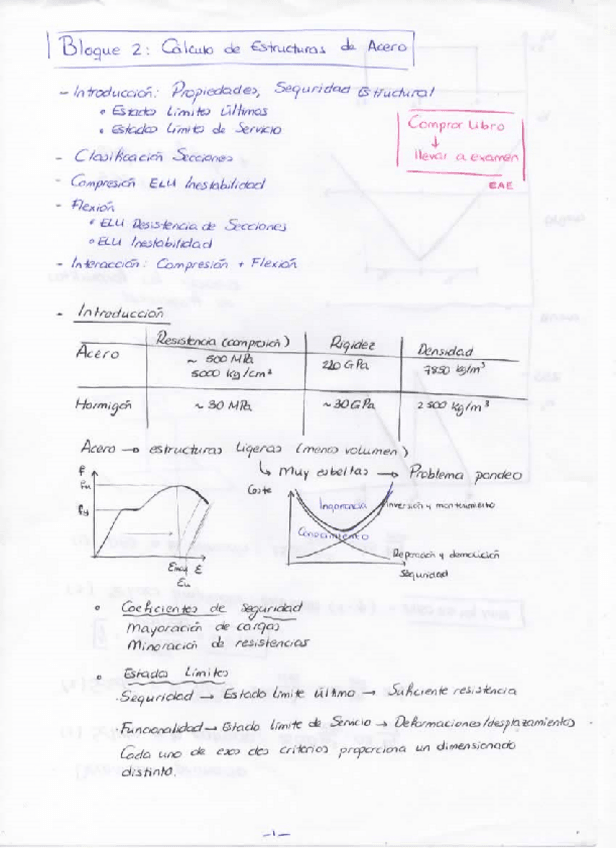 Bloque 2: Cálculo de Estructuras de Acero
- Introducción: Propiedades, Seguridad Estructural
• Estado Límites últimos
• Estados Límite de Servicio
Comprar Libro
↓
llevar a examen
EAE
- Clasificación Secciones
- Compresión ELU Inestabilidad
- Flexión
• ELU Resistencia de Secciones
• ELU Inestabilidad
- Interacción: Compresión + Flexión
- Introducción
Resistencia (compresión) Rigidez Densidad
Acero ~ 500 MPa 210 GPa 7850 kg/m³
5000 kg/cm²
Hormigón ~ 30 MPa ~ 30 GPa 2500 kg/m³
Acero → estructuras ligeras (menos volumen)
↳ Muy esbeltas → Problema pandeo
F
Fu
Fy
Emax E
Eu
Coste
Ingorancia
Inversión y mantenimiento
Conocimiento
Reparación y demolición
Seguridad
• Coeficientes de seguridad
Mayoración de cargas
Minoración de resistencias
• Estados Límites
· Seguridad → Estado límite último → Suficiente resistencia
· Funcionalidad → Estado límite de Servicio → Deformaciones/desplazamientos
Cada uno de esos dos criterios proporciona un dimensionado
distinto.
-1-